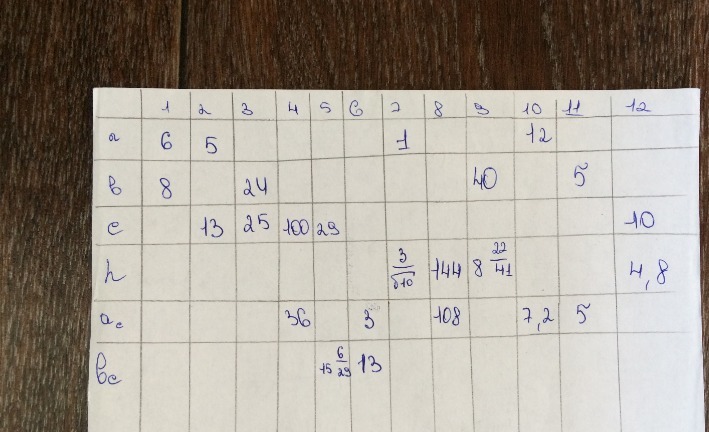 1 2 3 4 5 6 7 8 9 10 11 12
a 6 5 1 12
в 8 24 40 5
c 13 25 100 29 10
h 3/√10 144 8 22/41 4,8
a_c 36 3 108 7,2 5
в_c 15 6/29 13